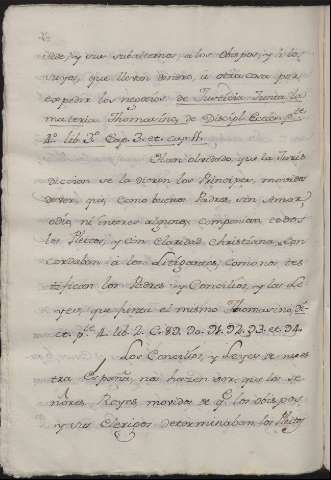 Sede, y sus subalternos, a los Obispos, y a los
suyos, que lleven dinero, u otra cosa por
expedir los negocios de Justicia
materia Thomasino, de Discipl. Eccles. p.te
2.a lib. 3.o Cap. 3. et cap. 11.
Han olvidado, que la Juris-
diccion se la dieron los Principes, movidos
de ver que, como buenos Padres, sin Amor
odio, ni interes alguno, componian todos
los Pleitos, y con claridad christiana, con
cordaban a los Litigantes, como nos tes
tifican los Padres y Concilios, y las Le
yes, que junta el mismo Thomasino
et. p.te 4. lib. 2. C. 89. 90. 91. 92. 93. et. 94.
Los Concilios, y Leyes de nues
tra España, nos hazen ver, que los Se
ñores Reyes movidos de q.e los obispos
y sus Clerigos determinaban los Pleitos